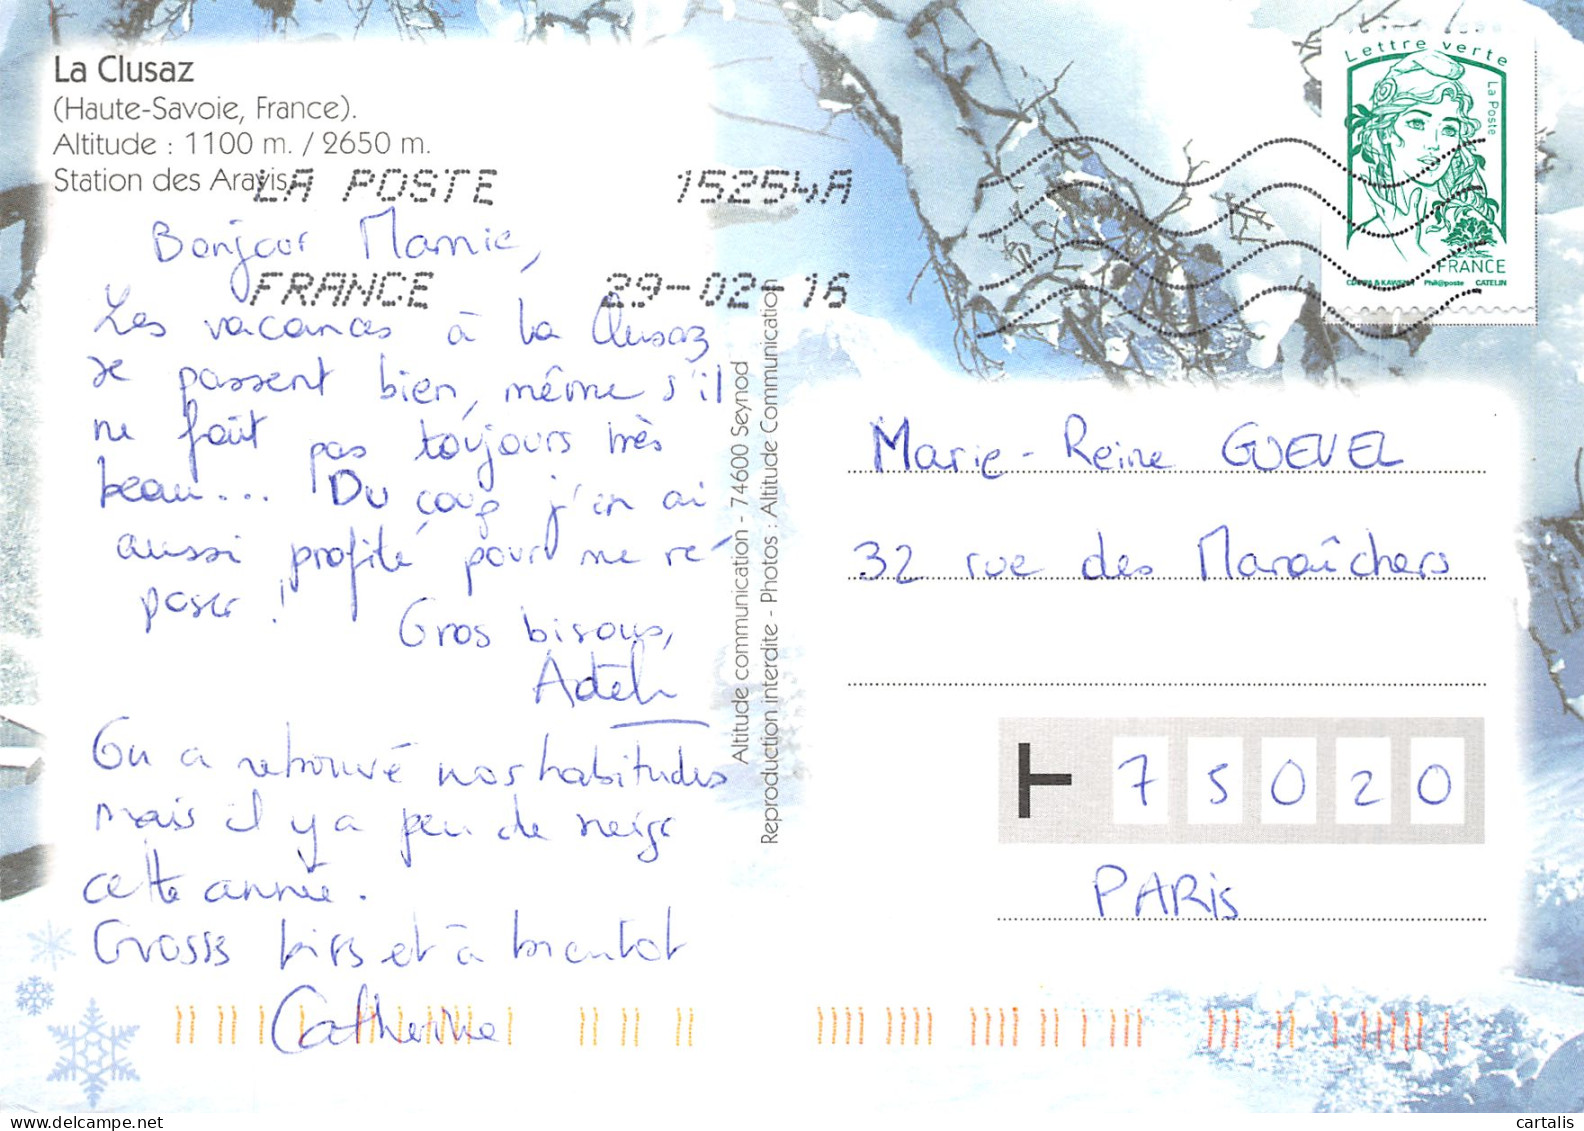 La Clusaz
(Haute-Savoie, France).
Altitude : 1100 m. / 2650 m.
Station des Aravis
LA POSTE 15254A
FRANCE 29-02-16
Bonjour Mamie,
Les vacances à la Clusaz
se passent bien, même s'il
ne fait pas toujours très
beau... Du coup j'en ai
aussi profité pour me re-
poser !
Gros bisous,
Adèle
On a retrouvé nos habitudes
mais il y a peu de neige
cette année.
Grosses bises et à bientôt
Catherine
Altitude communication - 74600 Seynod
Reproduction interdite - Photos : Altitude Communication
Lettre verte
La Poste
FRANCE
Phil@poste CATELIN
Marie-Reine GUEVEL
32 rue des Maraîchers
75020
PARIS
cartalis
www.delcampe.net